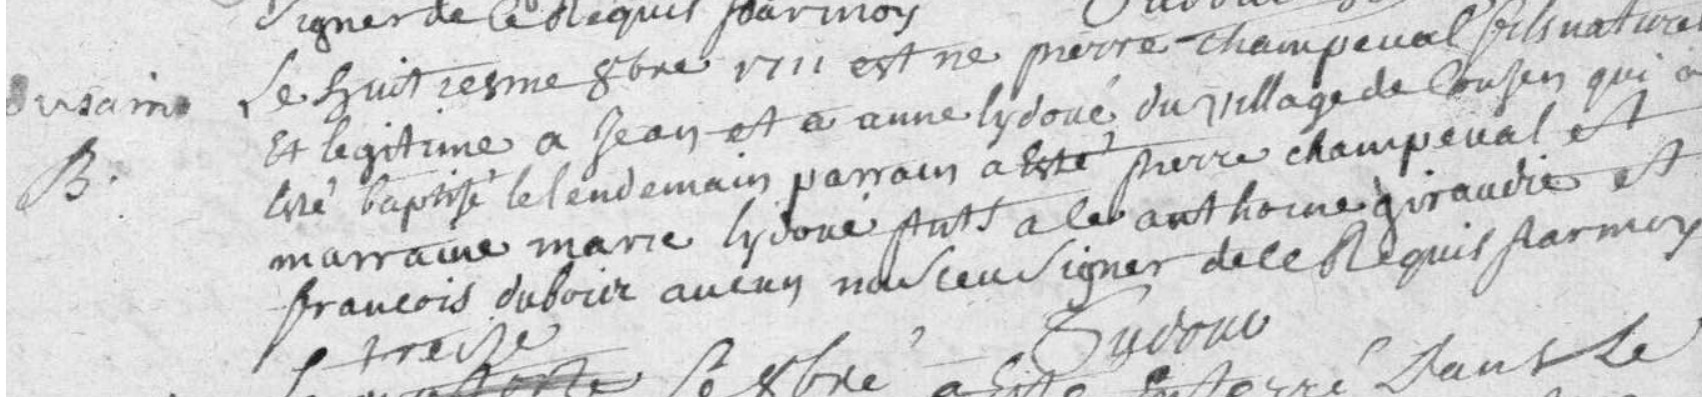 signer de ce Requis par moy
Le huitiesme 8bre 1711 est ne pierre champeval fils naturel
dusaim
Et legitime a Jean et a anne lydoué du village de Couzen qui a
B.
esté baptisé le lendemain parrain a esté pierre champeval et
marraine marie lydoué puts a le anthoine giraudie et
francois duboix aucun na sceu signer de ce Requis par moy
treize
Sudour
Le 8bre a esté Enterré Dans Le